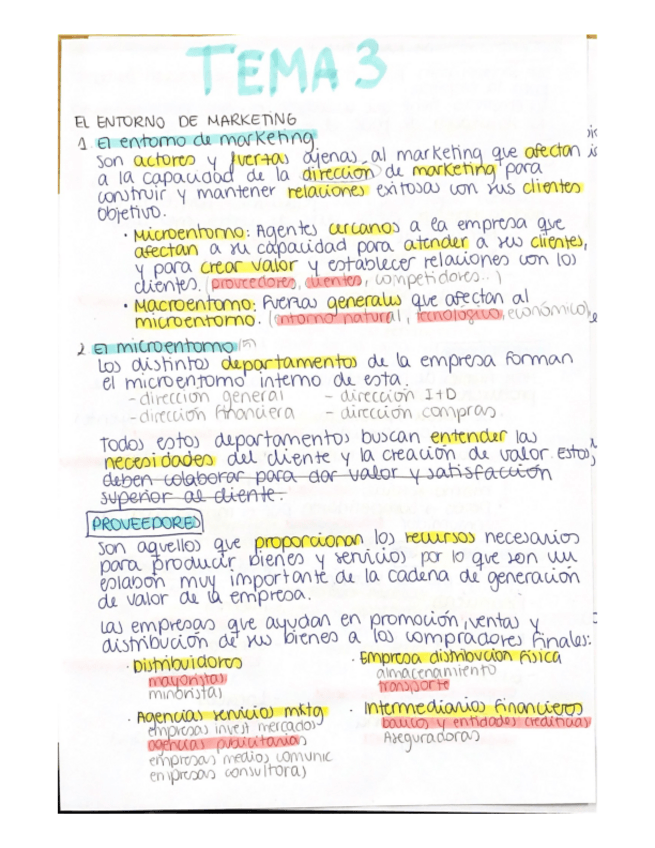 TEMA 3
EL ENTORNO DE MARKETING
1 El entorno de marketing
Son actores y fuertas ajenas al marketing que afectan
a la capacidad de la dirección de marketing para
construir y mantener relaciones exitosas con sus clientes
objetivo.
· Microentorno: Agentes cercanos a la empresa que
afectan a su capacidad para atender a sus clientes,
y para crear valor y establecer relaciones con los
clientes. (proveedores, clientes, competidores..)
· Macroentorno: Fuerzas generales que afectan al
microentorno. (entorno natural, tecnológico, económico)
2 El microentorno (5)
Los distintos departamentos de la empresa forman
el microentorno interno de esta.
- dirección general - dirección I+D
- dirección financiera - dirección compras.
Todos estos departamentos buscan entender las
necesidades del cliente y la creación de valor. Estos
deben colaborar para dar valor y satisfacción
superior al cliente.
PROVEEDORES
Son aquellos que proporcionan los recursos necesarios
para producir bienes y servicios por lo que son un
eslabón muy importante de la cadena de generación
de valor de la empresa.
Las empresas que ayudan en promoción, ventas y
distribución de sus bienes a los compradores finales:
· Distribuidores · Empresa distribución física
mayoristas almacenamiento
minoristas transporte
· Agencias servicios mktg · Intermediarios financieros
empresas invest mercados bancos y entidades crediticias
agencias publicitarias Aseguradoras
empresas medios comunic
empresas consultoras